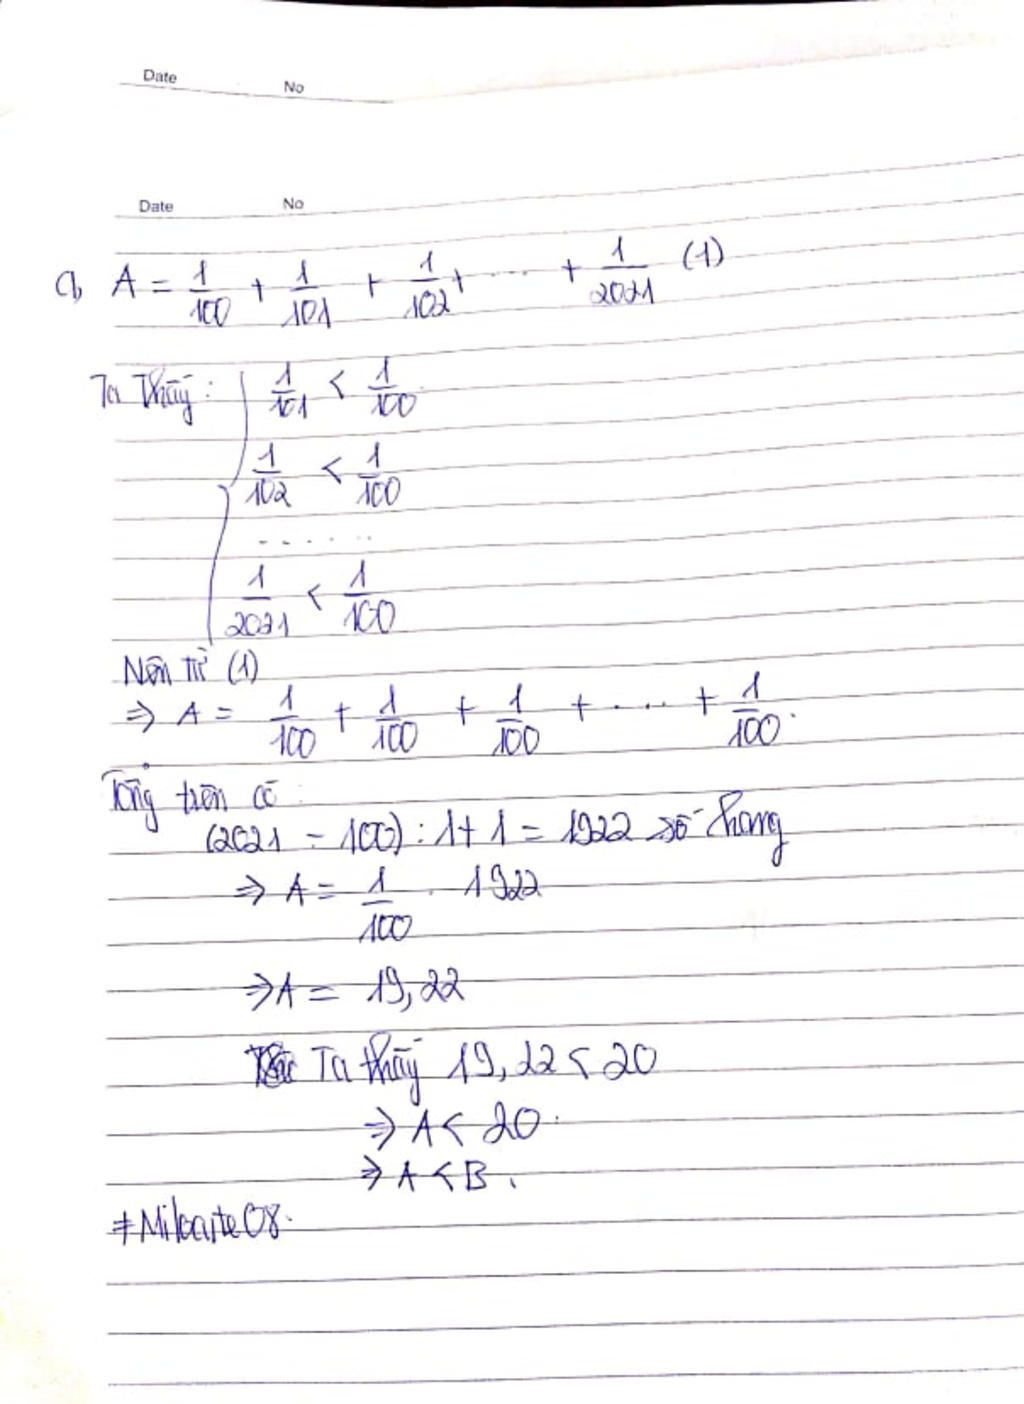 Date No
Date No
a, A = 1/100 + 1/101 + 1/102 + ... + 1/2021 (1)
Ta thấy: 1/101 < 1/100
1/102 < 1/100
.......
1/2021 < 1/100
Nên từ (1)
⇒ A = 1/100 + 1/100 + 1/100 + .... + 1/100.
Tổng trên có:
(2021 - 100) : 1 + 1 = 1922 số hạng
⇒ A = 1/100 . 1922
⇒ A = 19,22
Ta thấy 19,22 < 20
⇒ A < 20.
⇒ A < B.